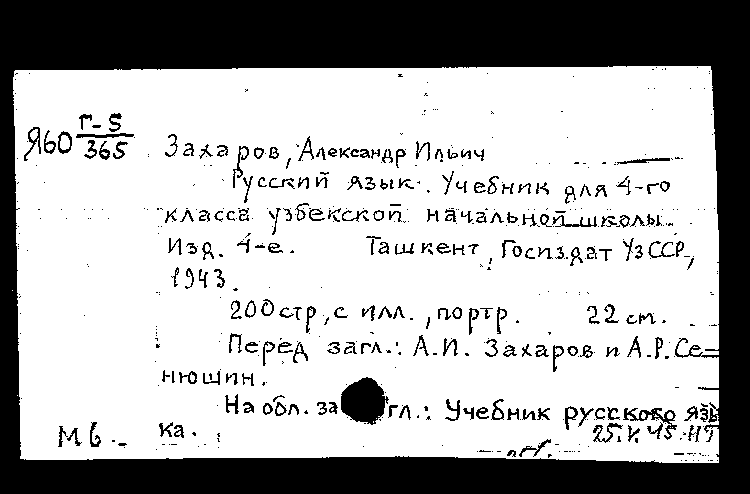 Я60 Г-5/365
Захаров, Александр Ильич
Русский язык. Учебник для 4-го
класса узбекской начальной школы.
Изд. 4-е. Ташкент, Госиздат УзССР,
1943.
200 стр., с илл., портр. 22 см.
Перед загл.: А.И. Захаров и А.Р. Се=
нюшин.
На обл. загл.: Учебник русского язы
ка.
М6.-